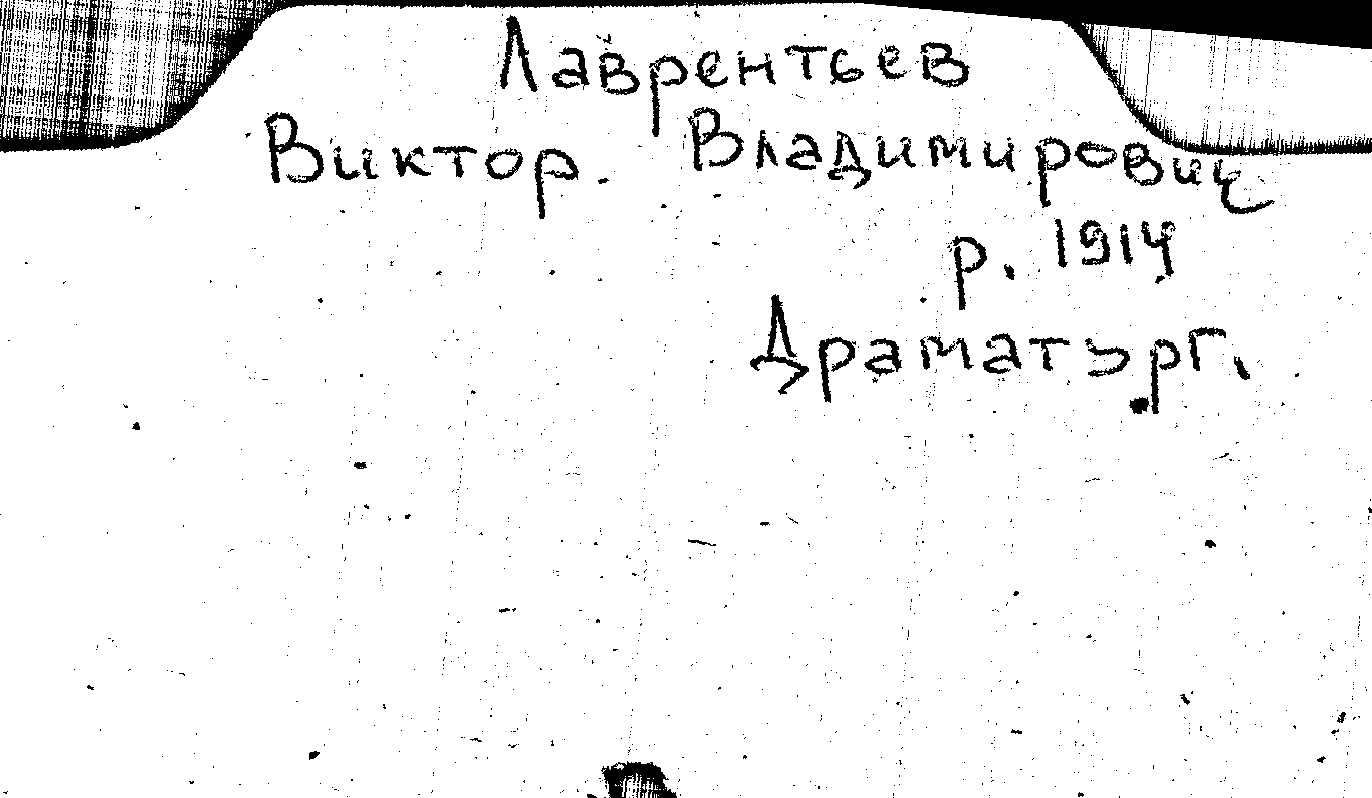 Лаврентьев
Виктор Владимирович
р. 1914
Драматург.